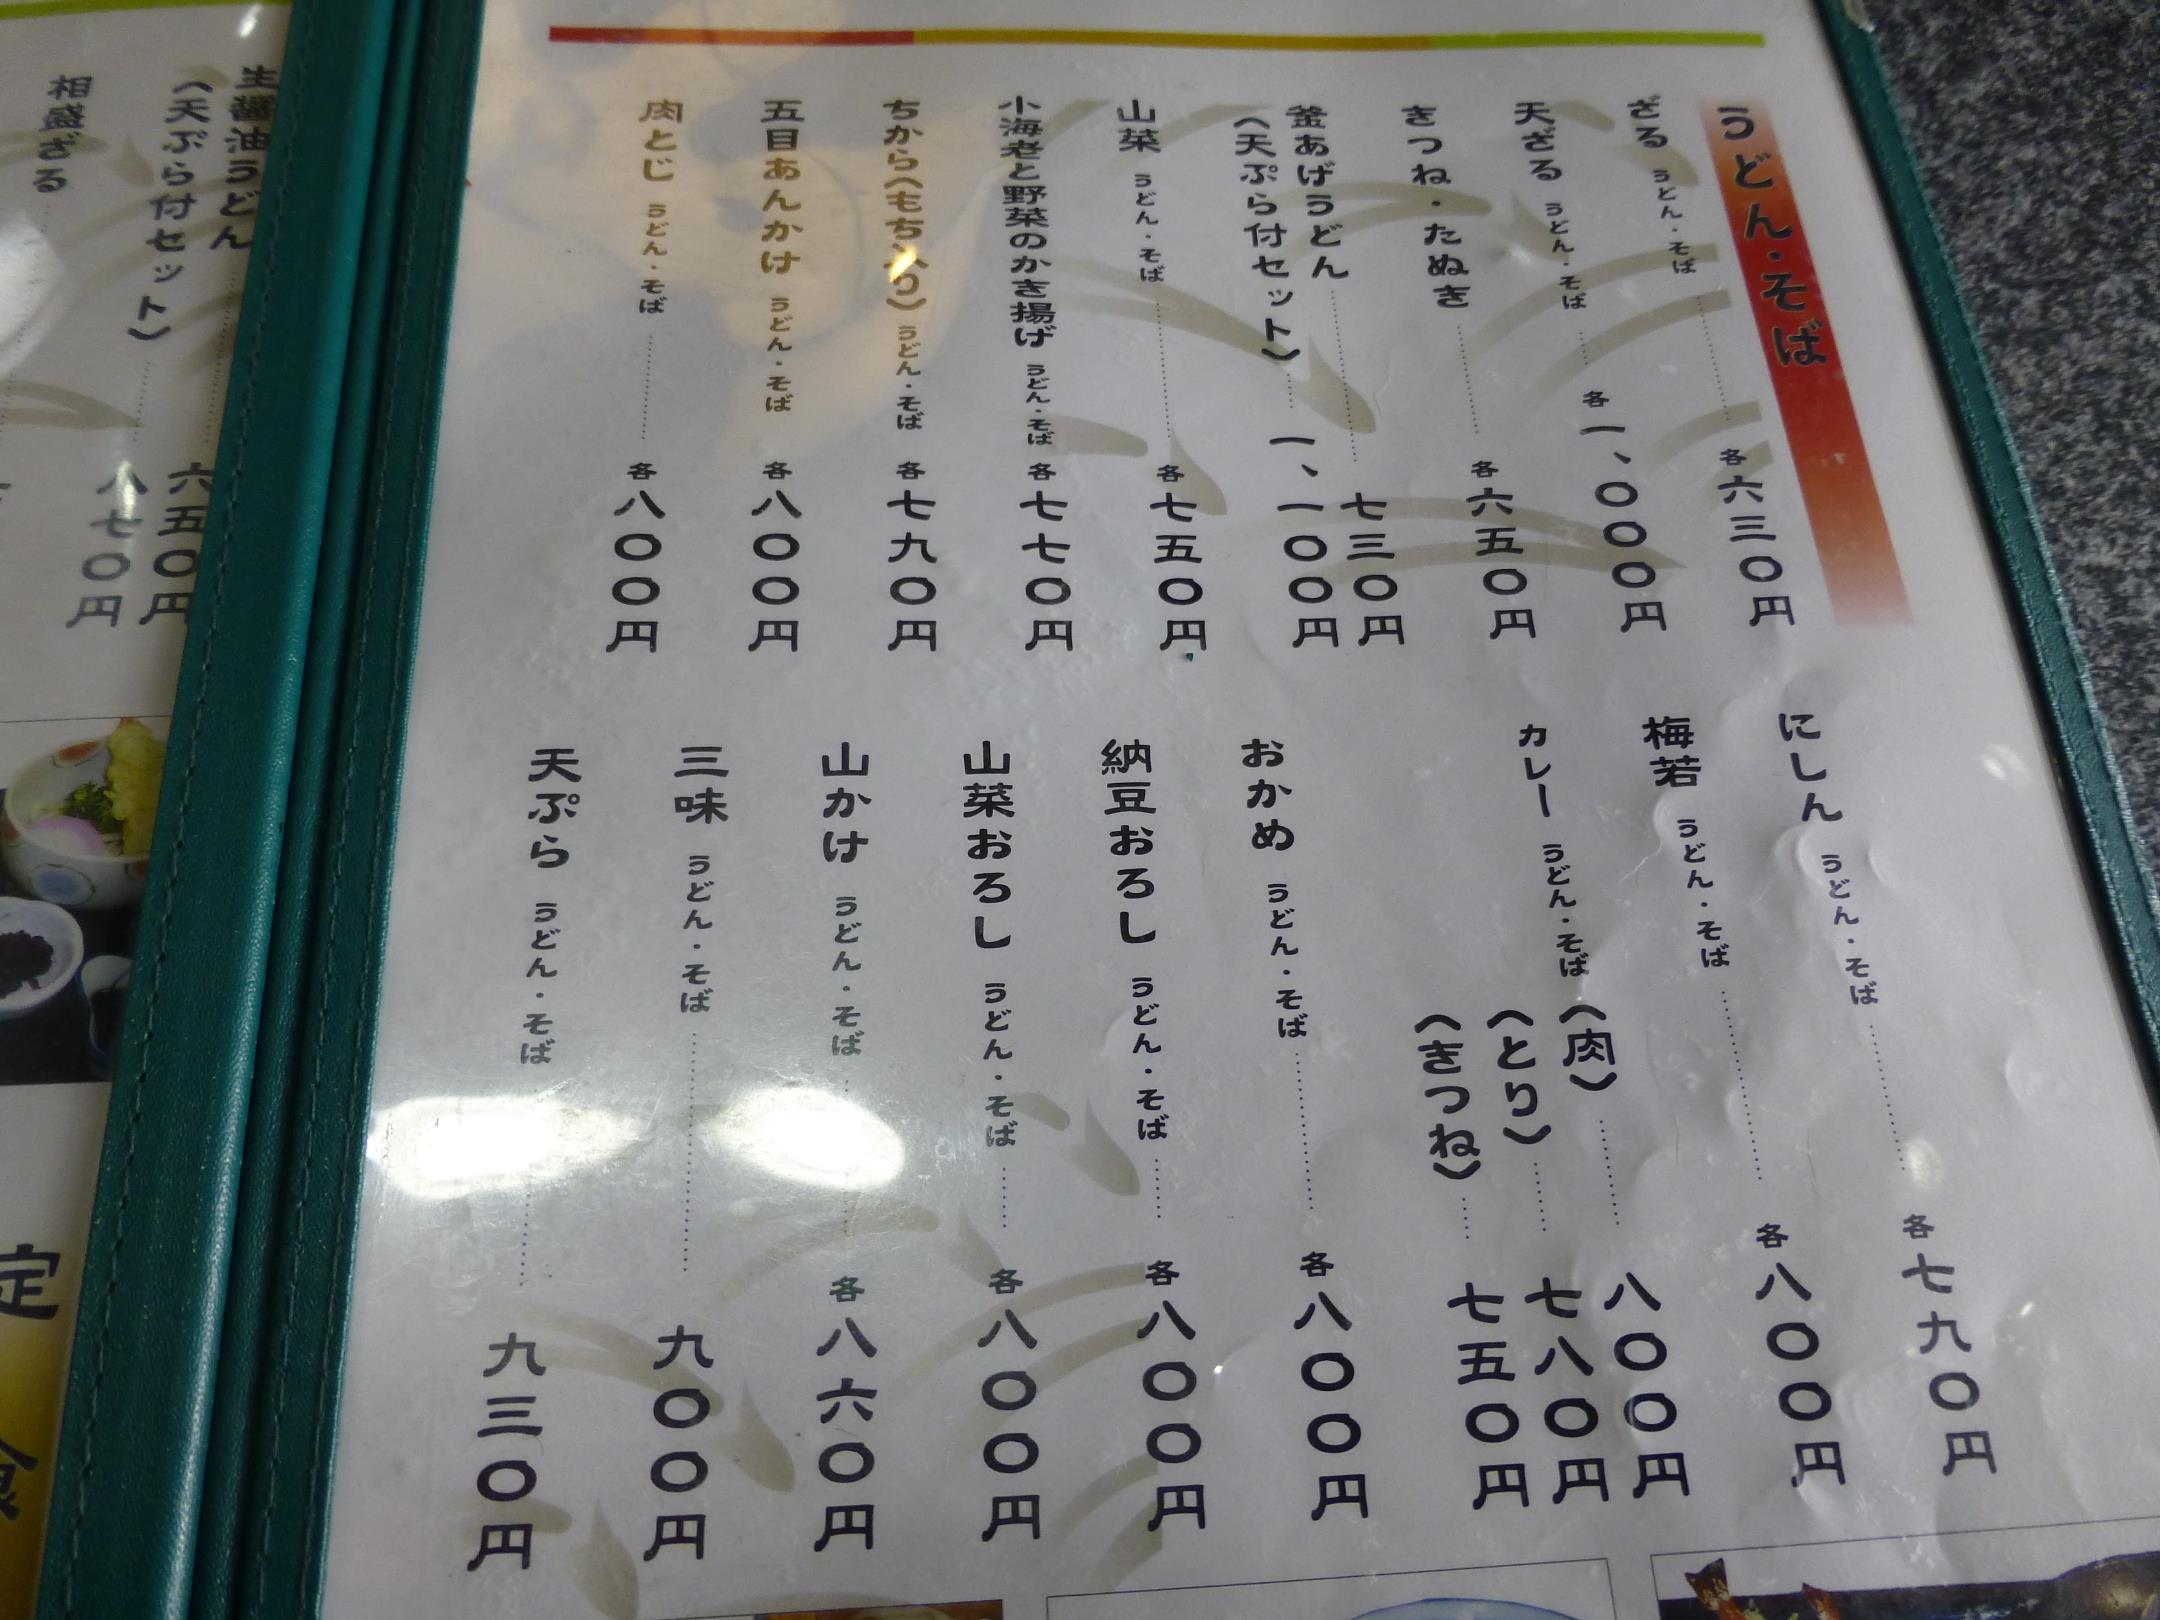 うどん・そば
ざる うどん・そば 各六三〇円
天ざる うどん・そば 各一、〇〇〇円
きつね・たぬき 各六五〇円
釜あげうどん 七三〇円
(天ぷら付セット) 一、一〇〇円
山菜 うどん・そば 各七五〇円
小海老と野菜のかき揚げ うどん・そば 各七七〇円
ちから(もち入り) うどん・そば 各七九〇円
五目あんかけ うどん・そば 各八〇〇円
肉とじ うどん・そば 各八〇〇円
にしん うどん・そば 各七九〇円
梅若 うどん・そば 各八〇〇円
カレー うどん・そば (肉) 八〇〇円
(とり) 七八〇円
(きつね) 七五〇円
おかめ うどん・そば 各八〇〇円
納豆おろし うどん・そば 各八〇〇円
山菜おろし うどん・そば 各八〇〇円
山かけ うどん・そば 各八六〇円
三味 うどん・そば 九〇〇円
天ぷら うどん・そば 九三〇円
生醤油うどん 六五〇円
(天ぷら付セット) 八七〇円
相盛ざる
定